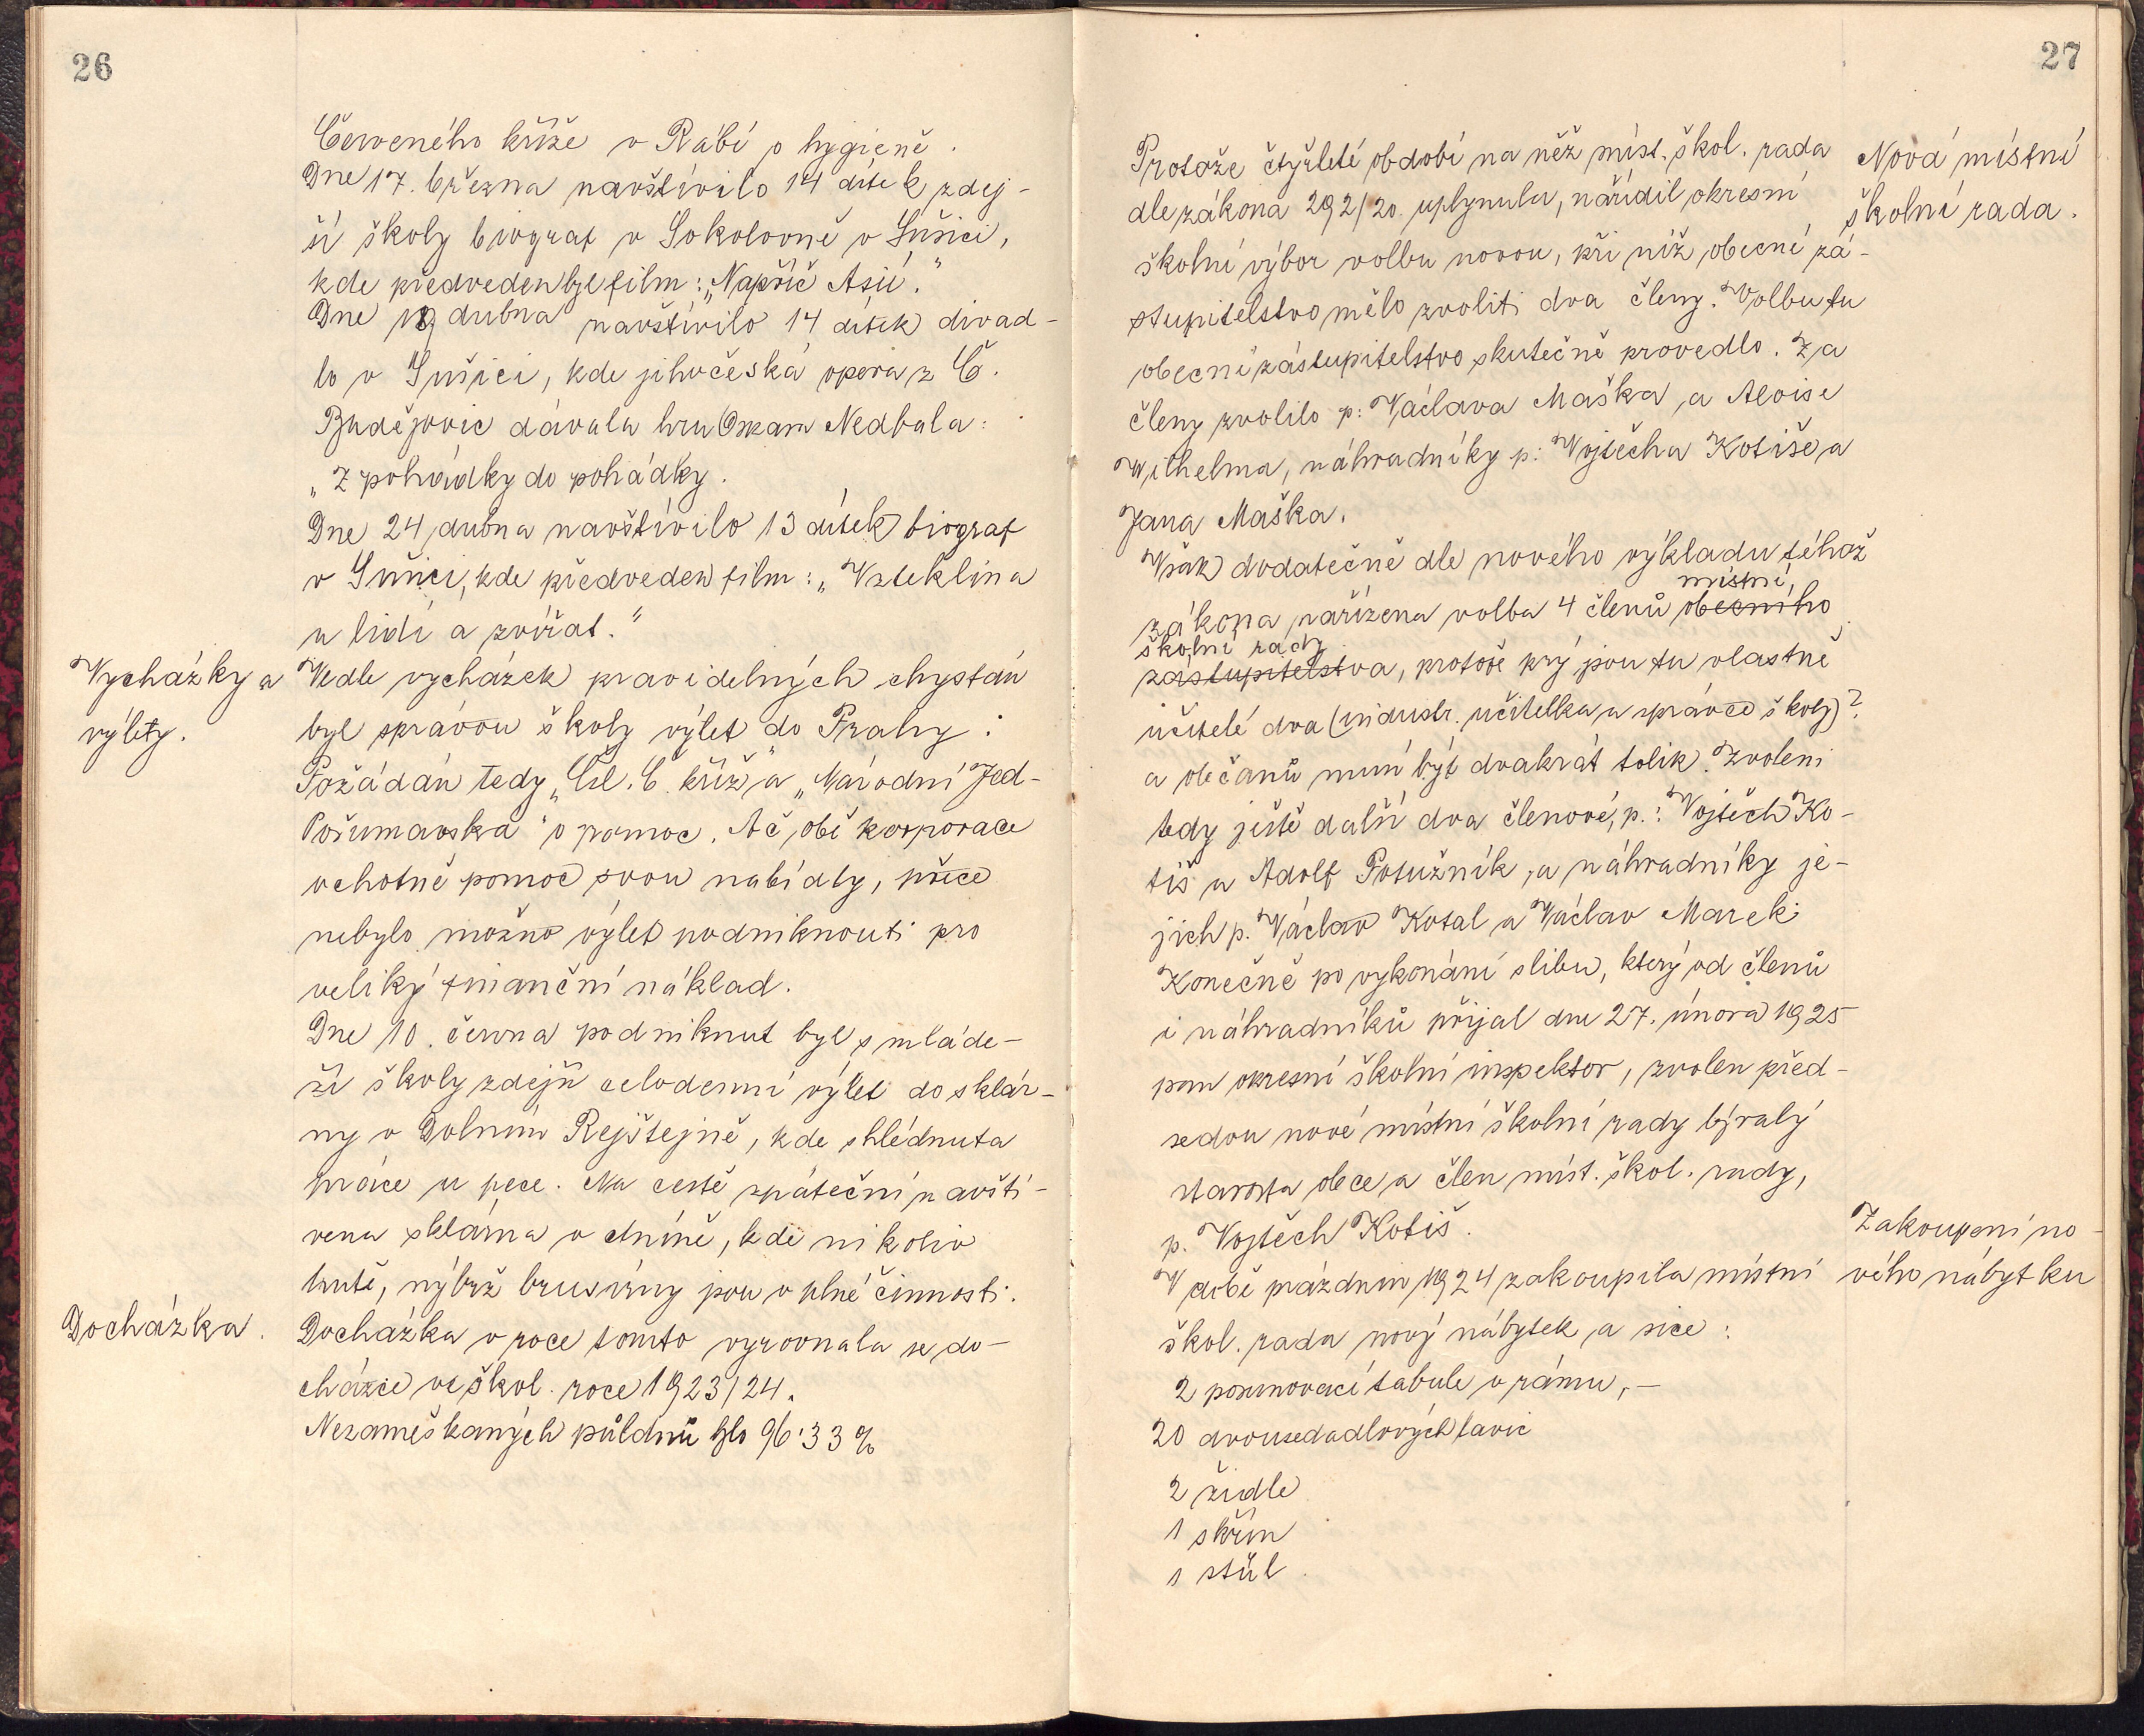 26
Červeného kříže v Rábí o hygieně.
Dne 17. března navštívilo 14 dítek zdej-
ší školy biograf v Sokolovně v Sušici,
kde předveden byl film: „Napříč Asií."
Dne 19 dubna navštívilo 14 dítek divad-
lo v Sušici, kde jihočeská opera z Č.
Budějovic dávala hru Oskara Nedbala:
„Z pohádky do pohádky.
Dne 24 dubna navštívilo 13 dítek biograf
v Sušici, kde předveden film: „Vzteklina
u lidí a zvířat."
Vycházky a
výlety.
Vedle vycházek pravidelných chystán
byl správou školy výlet do Prahy.
Požádán tedy „Čsl. Č. kříž" a „Národní Jed-
Pošumavská" o pomoc. Ač obě korporace
ochotně pomoc svou nabídly, přece
nebylo možno výlet podniknouti pro
veliký finanční náklad.
Dne 10. června podniknut byl s mláde-
ží školy zdejší celodenní výlet do sklár-
ny v Dolním Rejštejně, kde shlédnuta
práce u pece. Na cestě zpáteční navští-
vena sklárna v Anině, kde nikoliv
hutě, nýbrž brusírny jsou v plné činnosti.
Docházka.
Docházka v roce tomto vyrovnala se do-
cházce ve škol. roce 1923/24.
Nezameškaných půldnů bylo 96'33 %
27
Nová místní
školní rada.
Protože čtyřleté období na něž míst. škol. rada
dle zákona 292/20 uplynula, nařídil okresní
školní výbor volbu novou, při níž obecní zá-
stupitelstvo mělo zvoliti dva členy. Volbu tu
obecní zástupitelstvo skutečně provedlo. Za
členy zvolilo p: Václava Maška, a Aloise
Wilhelma, náhradníky p: Vojtěcha Kotiše a
Jana Maška.
Však dodatečně dle nového výkladu téhož
místní
zákona nařízena volba 4 členů obecního
školní rady
zástupitelstva, protože prý jsou tu vlastně
učitelé dva (industr. učitelka a správce školy)?
a občanů musí být dvakrát tolik. Zvoleni
tedy ještě další dva členové, p.: Vojtěch Ko-
tiš a Adolf Potužník, a náhradníky je-
jich p. Václav Kotal a Václav Marek.
Konečně po vykonání slibu, který od členů
i náhradníků přijal dne 27. února 1925
pan okresní školní inspektor, zvolen před-
sedou nové místní školní rady bývalý
starosta obce a člen míst. škol. rady,
p. Vojtěch Kotiš.
Zakoupení no-
vého nábytku
V době prázdnin 1924 zakoupila místní
škol. rada nový nábytek a sice:
2 posunovací tabule v rámu, —
20 dvousedadlových lavic
2 židle
1 skříň
1 stůl.